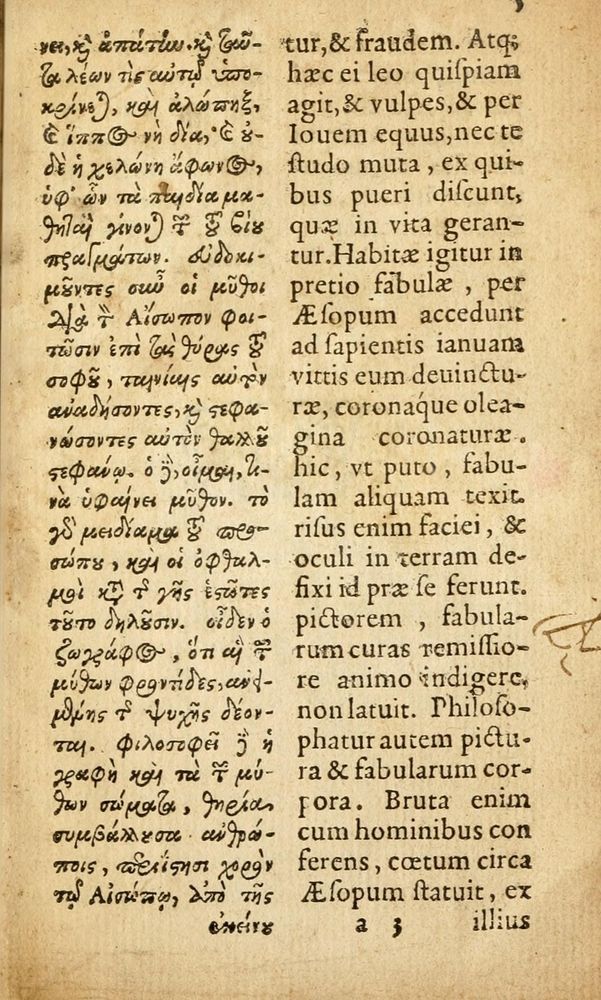 νει, καὶ ἀπάτην. καὶ ταῦ-
τα λέων τὶς αὐτῷ ὑπο-
κρίνεται, καὶ ἀλώπηξ,
καὶ ἵππος νὴ δία, καὶ οὐ-
δὲ ἡ χελώνη ἄφωνος,
ὑφ' ὧν τὰ παιδία μα-
θηταὶ γίνονται τῶν τοῦ βίου
πραγμάτων. εὐδοκι-
μοῦντες οὖν οἱ μῦθοι
διὰ τὸν Αἴσωπον φοι-
τῶσιν ἐπὶ τὰς θύρας τοῦ
σοφοῦ, ταινίαις αὐτὸν
ἀναδήσοντες, καὶ στεφα-
νώσοντες αὐτὸν θαλλοῦ
στεφάνῳ. ὁ δὲ, οἶμαι, τι-
νὰ ὑφαίνει μῦθον. τὸ
γὰρ μειδίαμα τοῦ προ-
σώπου, καὶ οἱ ὀφθαλ-
μοὶ κατὰ τῆς γῆς ἑστῶτες
τοῦτο δηλοῦσιν. οἶδεν ὁ
ζωγράφος, ὅτι αἱ τῶν
μύθων φροντίδες, ἀνει-
μένης τῆς ψυχῆς δέον-
ται. φιλοσοφεῖ δὲ ἡ
γραφὴ καὶ τὰ τῶν μύ-
θων σώματα, θηρία
συμβάλλουσα ἀνθρώ-
ποις, περιίστησι χορὸν
τῷ Αἰσώπῳ, ἀπὸ τῆς
ἐκείνου
tur, & fraudem. Atq;
hæc ei leo quiſpiam
agit, & vulpes, & per
Iouem equus, nec te
ſtudo muta, ex qui-
bus pueri diſcunt,
quæ in vita geran-
tur. Habitæ igitur in
pretio fabulæ, per
Æſopum accedunt
ad ſapientis ianuam
vittis eum deuinctu-
ræ, coronaque olea-
gina coronaturæ.
hic, vt puto, fabu-
lam aliquam texit.
riſus enim faciei, &
oculi in terram de-
fixi id præ ſe ferunt.
pictorem, fabula-
rum curas remiſſio-
re animo indigere,
non latuit. Philoſo-
phatur autem pictu-
ra & fabularum cor-
pora. Bruta enim
cum hominibus con
ferens, cœtum circa
Æſopum ſtatuit, ex
a 3 illius